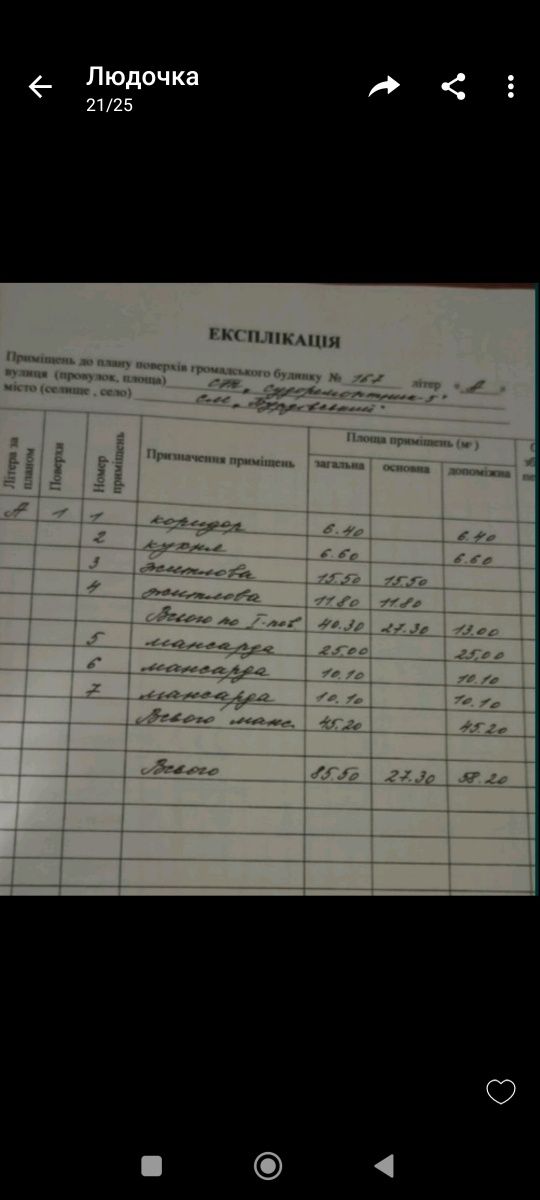 Людочка
21/25
ЕКСПЛІКАЦІЯ
Приміщень до плану поверхів громадського будинку № 167 літер "А"
вулиця (провулок, площа) СТ "Судоремонтник-5"
місто (селище , село)
Літера за планом Поверхи Номер приміщень Призначення приміщень Площа приміщень (м²)
загальна основна допоміжна
А 1 1 коридор 6.40 6.40
2 кухня 6.60 6.60
3 житлова 15.50 15.50
4 житлова 11.80 11.80
Всього по І-пов 40.30 27.30 13.00
5 мансарда 25.00 25.00
6 мансарда 10.10 10.10
7 мансарда 10.10 10.10
Всього манс. 45.20 45.20
Всього 85.50 27.30 58.20